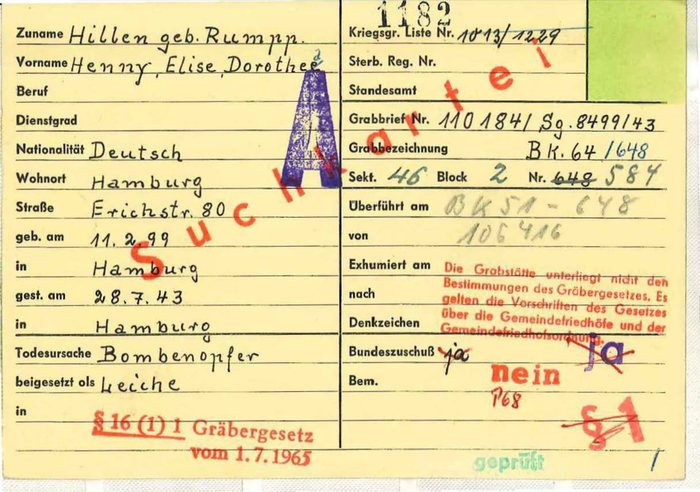 1182
Zuname Hillen geb. Rumpp.
Vorname Henny, Elise, Dorothee
Beruf
Dienstgrad
Nationalität Deutsch
Wohnort Hamburg
Straße Erichstr. 80
geb. am 11.2.99
in Hamburg
gest. am 28.7.43
in Hamburg
Todesursache Bombenopfer
beigesetzt als Leiche
in
§ 16 (1) 1 Gräbergesetz
vom 1.7.1965
A
Suchkartei
Kriegsgr. Liste Nr. 1013/1229
Sterb. Reg. Nr.
Standesamt
Grabbrief Nr. 110184/ Sg. 8499/43
Grabbezeichnung BK. 64/648
Sekt. 46 Block 2 Nr. 648 584
Überführt am BK 51 - 648
von 106416
Exhumiert am
nach
Denkzeichen
Die Grabstätte unterliegt nicht den
Bestimmungen des Gräbergesetzes. Es
gelten die Vorschriften des Gesetzes
über die Gemeindefriedhöfe und der
Gemeindefriedhofsordnung.
Bundeszuschuß ja ja
nein
Bem. P68
§ 1
geprüft
1